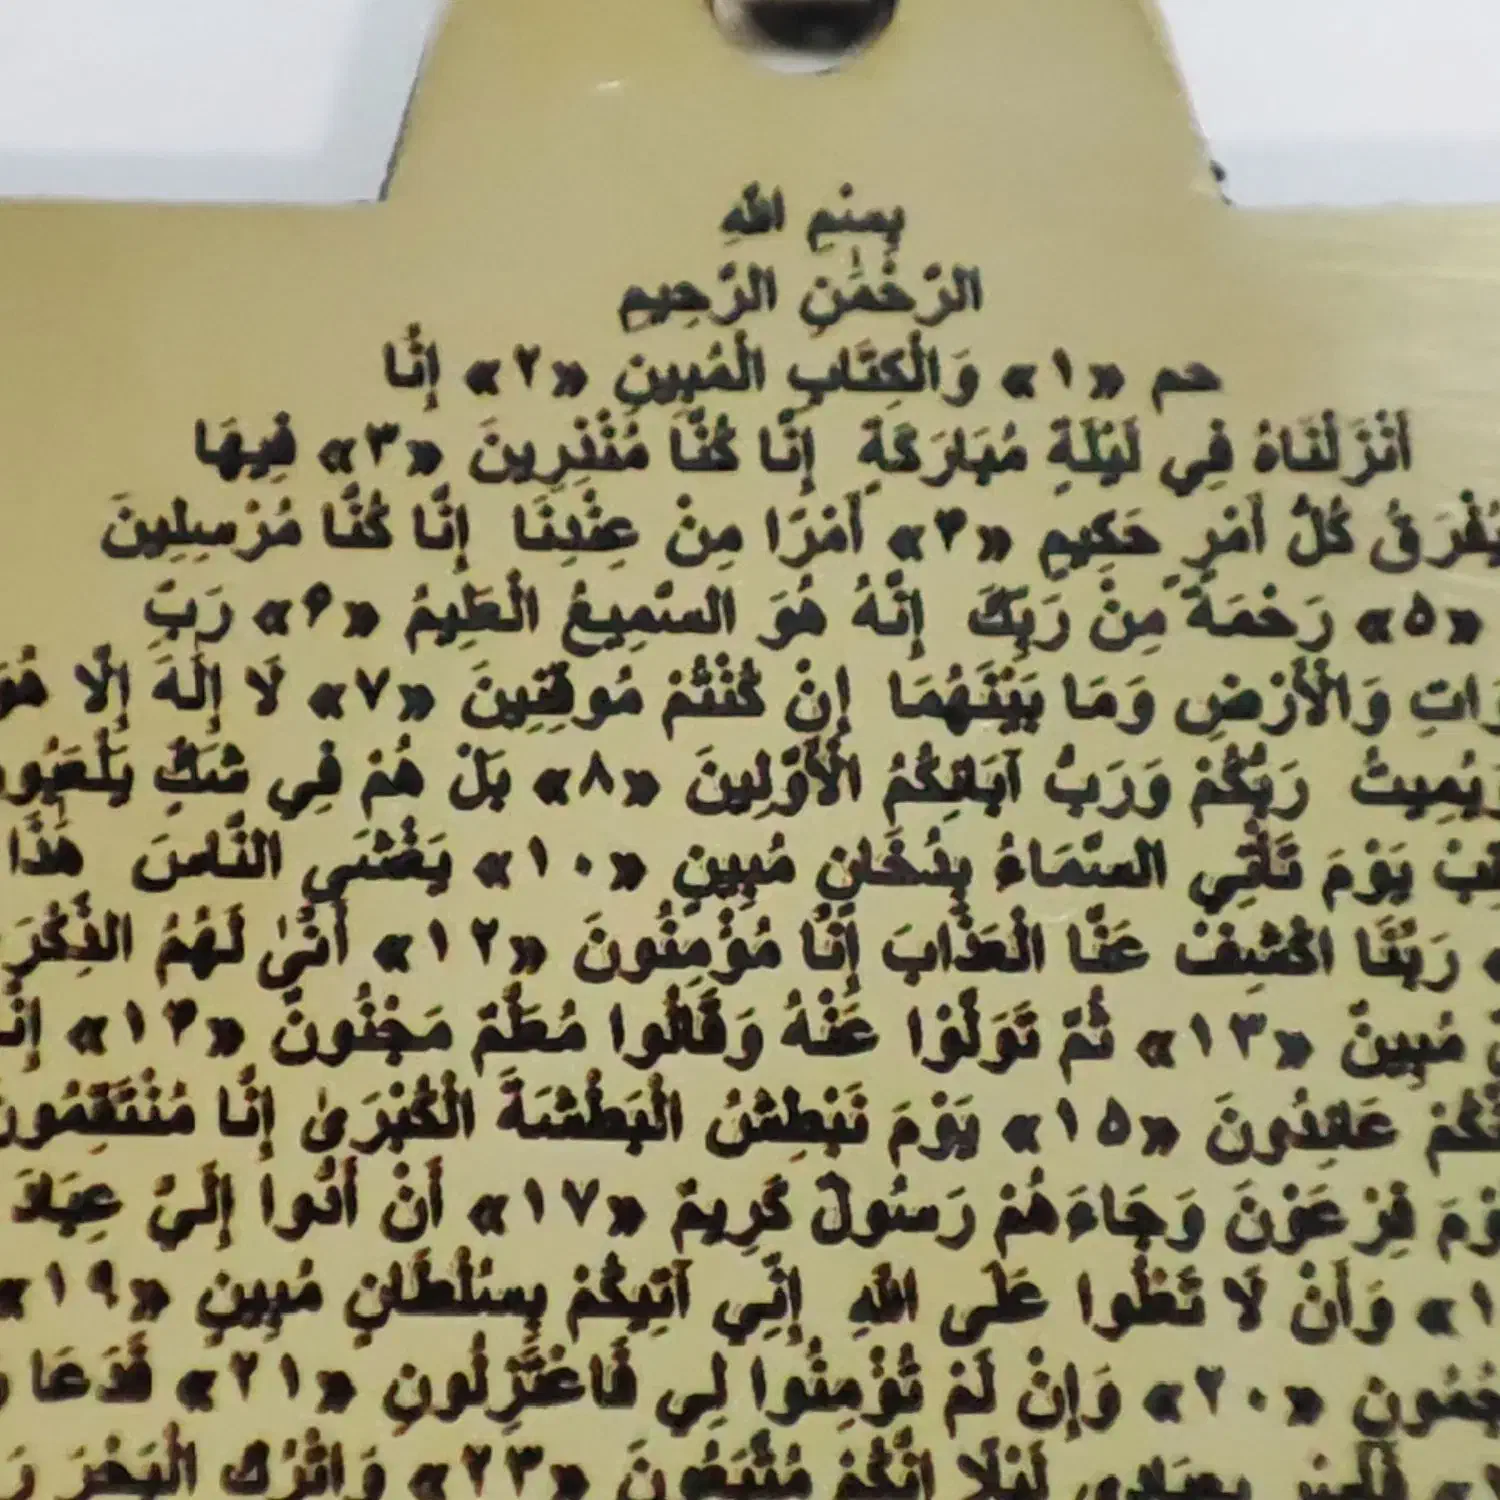 بِسْمِ اللَّهِ
الرَّحْمَٰنِ الرَّحِيمِ
حم «۱» وَالْكِتَابِ الْمُبِينِ «۲» إِنَّا
أَنْزَلْنَاهُ فِي لَيْلَةٍ مُبَارَكَةٍ إِنَّا كُنَّا مُنْذِرِينَ «۳» فِيهَا
يُفْرَقُ كُلُّ أَمْرٍ حَكِيمٍ «۴» أَمْرًا مِنْ عِنْدِنَا إِنَّا كُنَّا مُرْسِلِينَ
«۵» رَحْمَةً مِنْ رَبِّكَ إِنَّهُ هُوَ السَّمِيعُ الْعَلِيمُ «۶» رَبِّ
وَاتِ وَالْأَرْضِ وَمَا بَيْنَهُمَا إِنْ كُنْتُمْ مُوقِنِينَ «۷» لَا إِلَٰهَ إِلَّا هُوَ
وَيُمِيتُ رَبُّكُمْ وَرَبُّ آبَائِكُمُ الْأَوَّلِينَ «۸» بَلْ هُمْ فِي شَكٍّ يَلْعَبُو
يَوْمَ تَأْتِي السَّمَاءُ بِدُخَانٍ مُبِينٍ «۱۰» يَغْشَى النَّاسَ هَٰذَا
رَبَّنَا اكْشِفْ عَنَّا الْعَذَابَ إِنَّا مُؤْمِنُونَ «۱۲» أَنَّىٰ لَهُمُ الذِّكْرَ
مُبِينٌ «۱۳» ثُمَّ تَوَلَّوْا عَنْهُ وَقَالُوا مُعَلَّمٌ مَجْنُونٌ «۱۴» إِنَّا
عَائِدُونَ «۱۵» يَوْمَ نَبْطِشُ الْبَطْشَةَ الْكُبْرَىٰ إِنَّا مُنْتَقِمُونَ
وْمَ فِرْعَوْنَ وَجَاءَهُمْ رَسُولٌ كَرِيمٌ «۱۷» أَنْ أَدُّوا إِلَيَّ عِبَادَ
» وَأَنْ لَا تَعْلُوا عَلَى اللَّهِ إِنِّي آتِيكُمْ بِسُلْطَانٍ مُبِينٍ «۱۹»
جُمُونِ «۲۰» وَإِنْ لَمْ تُؤْمِنُوا لِي فَاعْتَزِلُونِ «۲۱» فَدَعَا
فَأَسْرِ بِعِبَادِي لَيْلًا إِنَّكُمْ مُتَّبَعُونَ «۲۳» وَاتْرُكِ الْبَحْرَ رَ